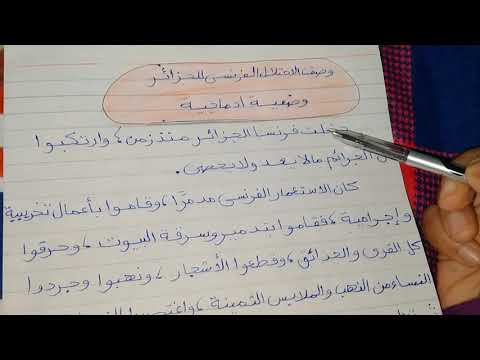 وصف الاحتلال الفرنسي للجزائر
وضعية ادماجية
دخلت فرنسا الجزائر منذ زمن، وارتكبوا
من الجرائم مالا يعد ولا يحصى.
كان الاستعمار الفرنسي مدمرا، وقاموا بأعمال تخريبية
وإجرامية، فقاموا بتدمير وسرقة البيوت، وحرقوا
كل القرى والحدائق، وقطعوا الأشجار، ونهبوا وجردوا
النساء من الذهب والملابس الثمينة، واغتصبوا